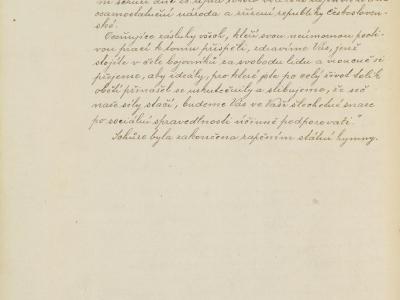 osamostatnění národa a zřízení republiky Českosloven-
ské.
Oceňujíce zásluhy všech, kteří svou neúmornou poctivou
prací k tomu přispěli, zdravíme Vás, jenž
stojíte v čele bojovníků za svobodu lidu a vroucně si
přejeme, aby ideály, pro které jste po celý život tolik
obětí přinášel se uskutečnily a slibujeme, že seč
naše síly stačí, budeme Vás ve Vaší šlechetné snaze
po sociální spravedlnosti účinně podporovati."
Schůze byla zakončena zapěním státní hymny.